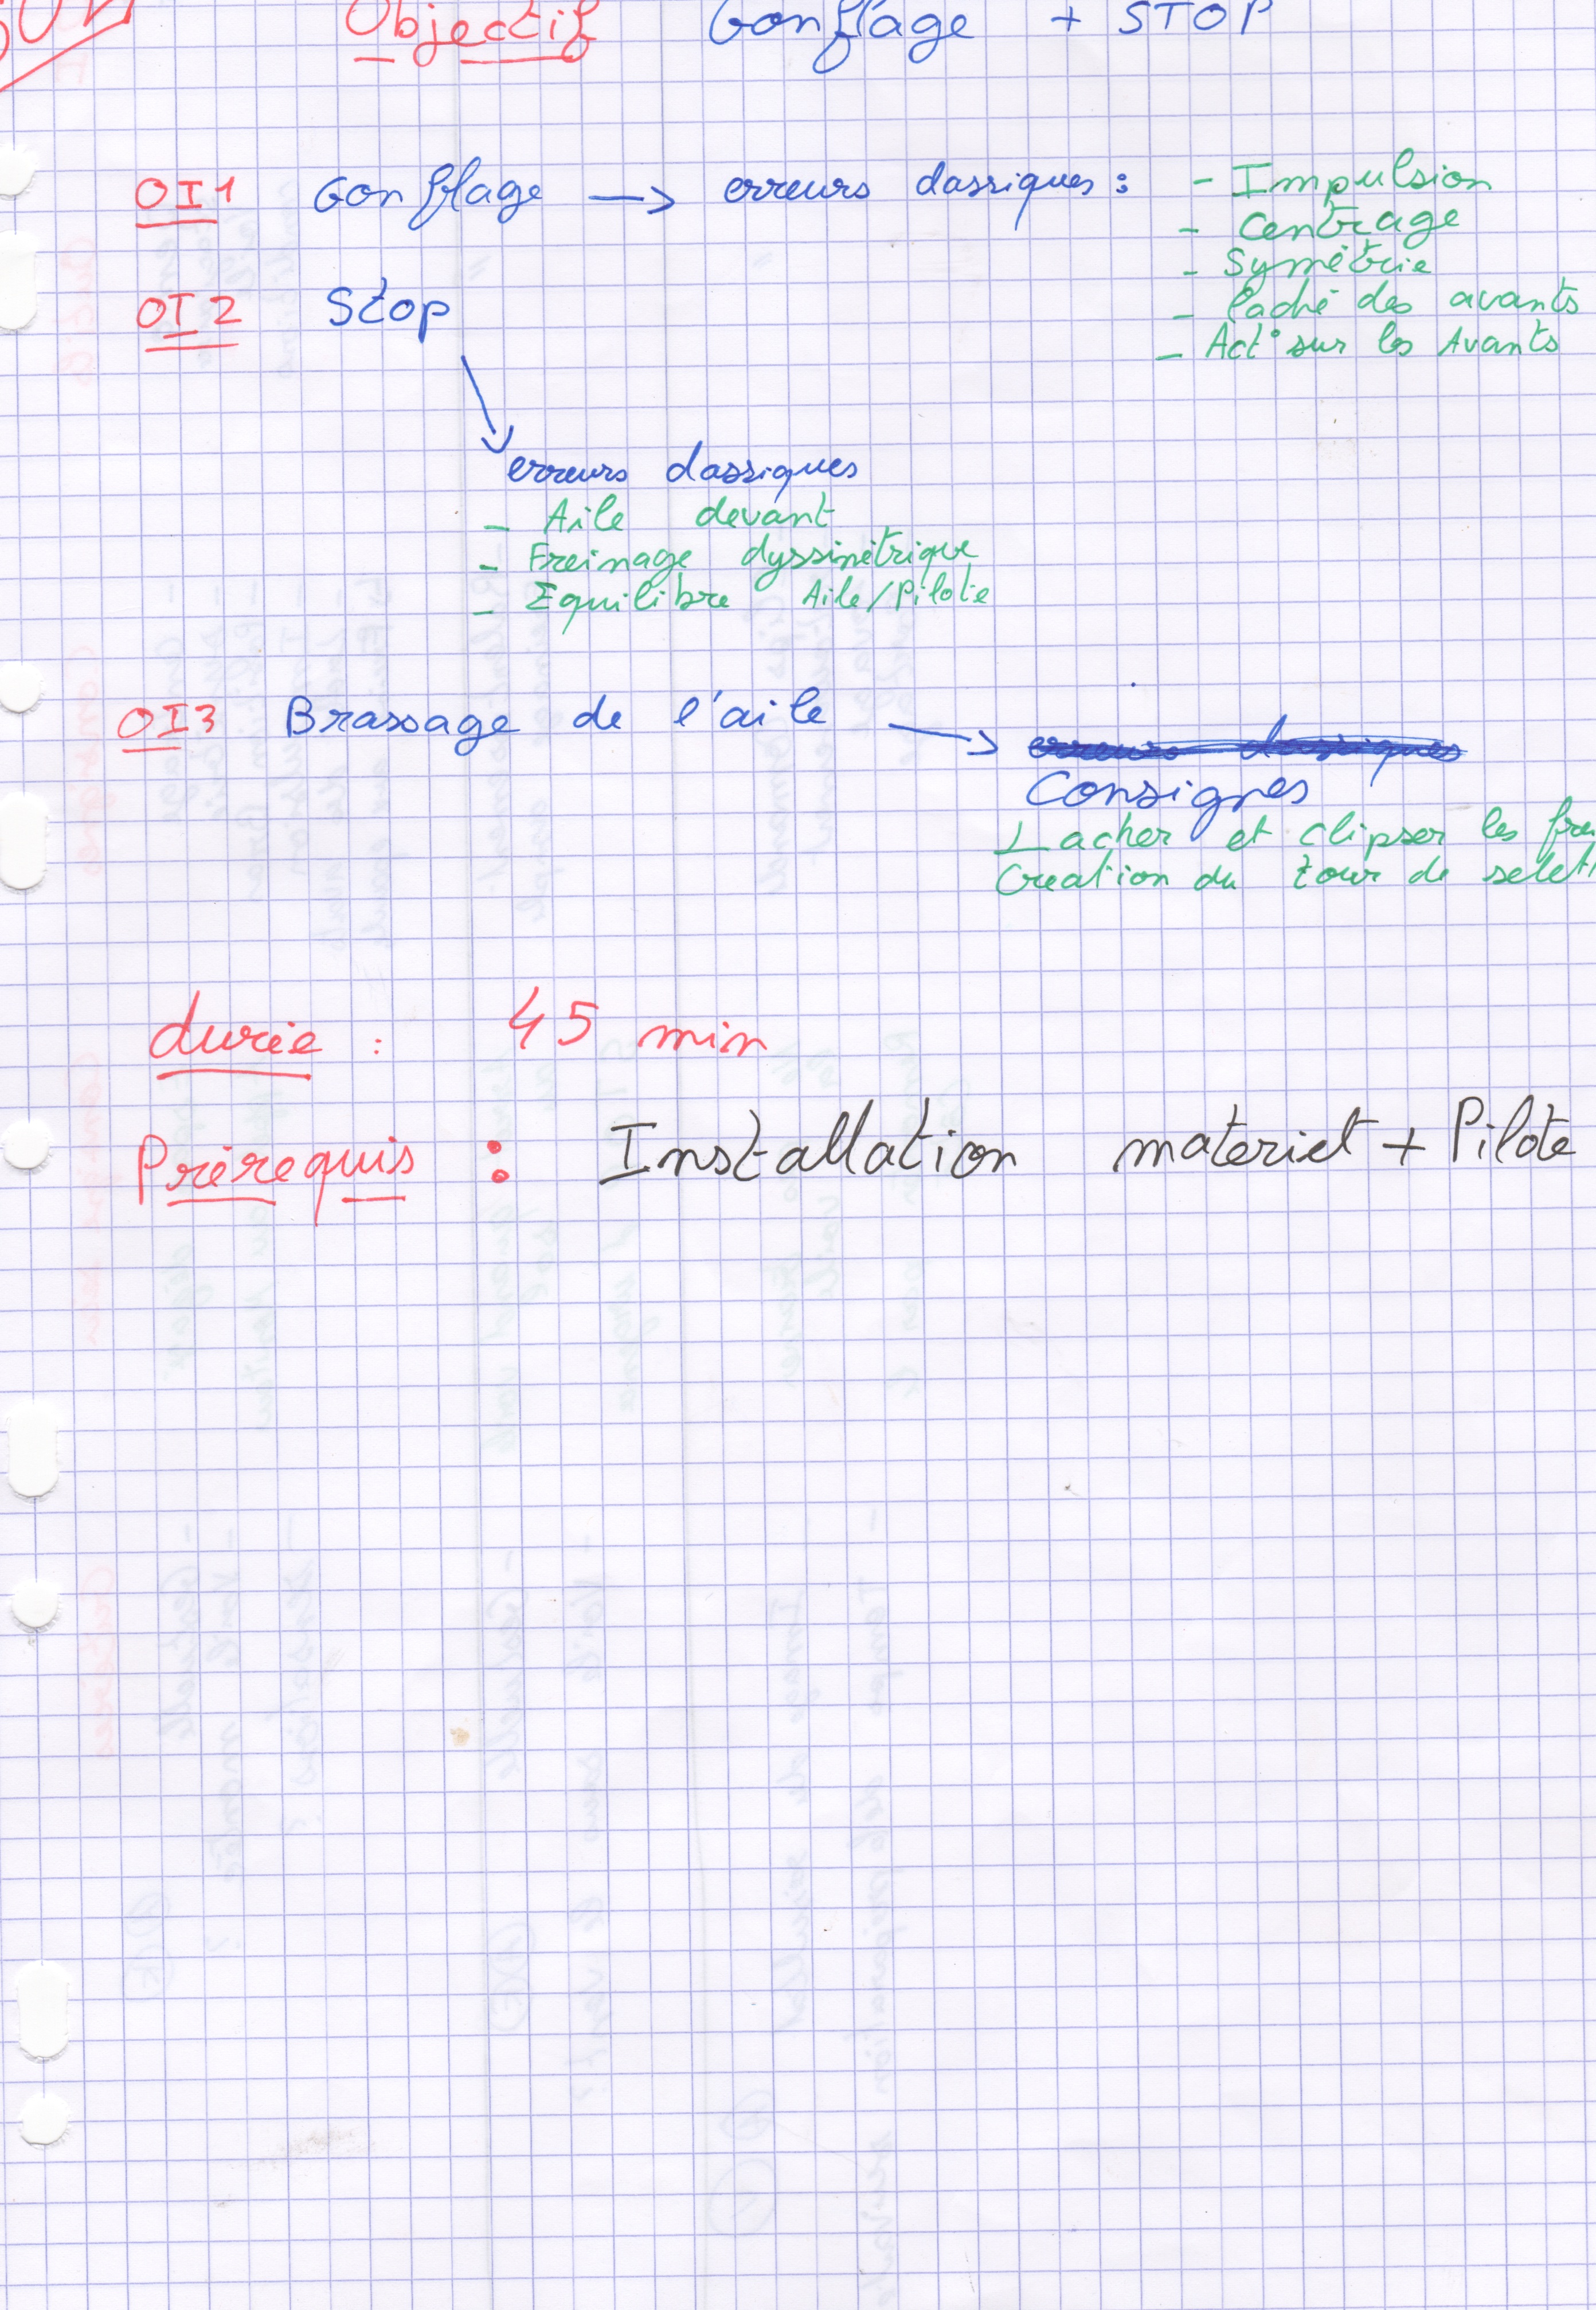 Objectif Gonflage + STOP
OI1 Gonflage → erreurs classiques : - Impulsion
- Centrage
- Symétrie
- laché des avants
- Act° sur les Avants
OI2 Stop
erreurs classiques
- Aile devant
- Freinage dyssimétrique
- Equilibre Aile/Pilote
OI3 Brassage de l'aile →
Consignes
Lacher et clipser les
Creation du tour de
durée : 45 min
Prérequis : Installation materiel + Pilote